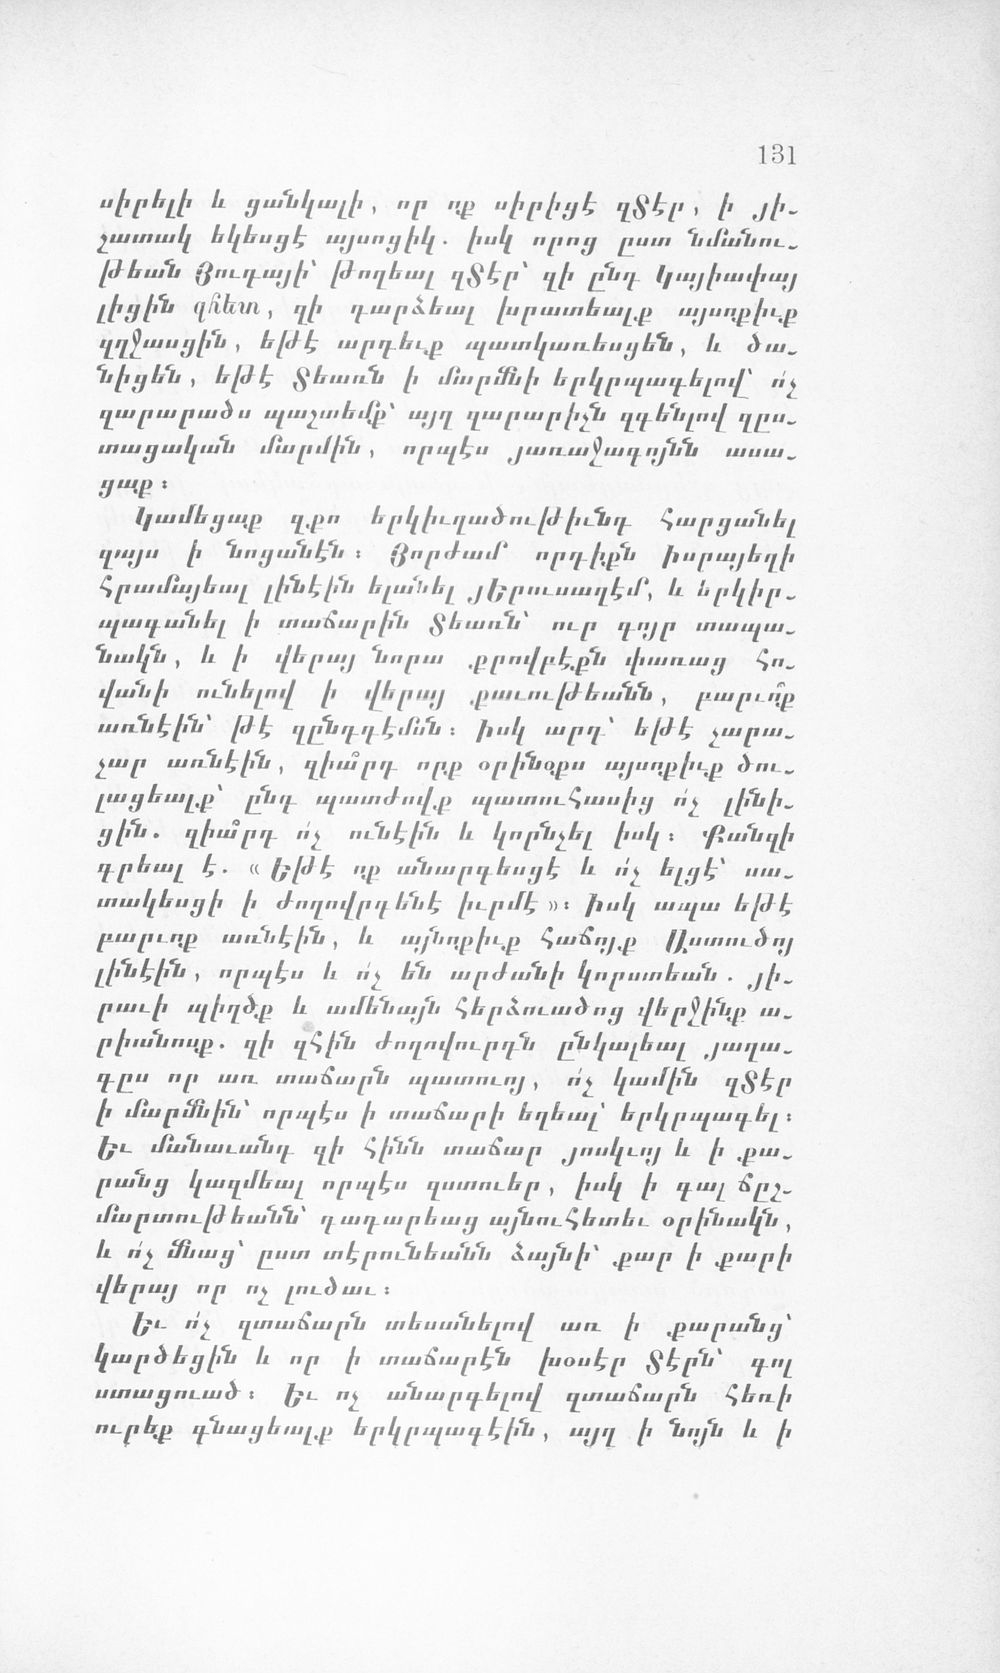 131
սիրելի և ցանկալի, որ ոք սիրիցէ զՏէր, ի յի֊
շատակ եկեսցէ այսոցիկ. իսկ որոց ըստ նմանու֊
թեան Յուդայի՝ թողեալ զՏէր՝ զի ընդ Կայիափայ
լիցին զհետ, զի դարձեալ խրատեալք այսոքիւք
զղջասցին, եթէ արդեւք պատկառեսցեն, և ծա֊
նիցեն, եթէ Տեառն ի մարմնի երկրպագելով՝ ո՛չ
զարարածս պաշտեմք՝ այղ զարարիչն զգենլով զըս֊
տացական մարմին, որպէս յառաջագոյնն ասա֊
ցաք։
Կամեցաք զքո երկիւղածութիւնդ հարցանել
զայս ի նոցանէն։ Յորժամ որդիքն իսրայեղի
հրամայեալ լինէին ելանել յԵրուսաղէմ, և երկիր֊
պագանել ի տաճարին Տեառն՝ ուր գոյր տապա֊
նակն, և ի վերայ նորա քրովբէքն փառաց հո֊
վանի ունելով ի վերայ քաւութեանն, բարւո՞ք
առնէին՝ թէ զընդդէմսն։ Իսկ արդ՝ եթէ չարա֊
չար առնէին, զիա՞րդ որք օրինօքս այսոքիւք ծու֊
լացեալք՝ ընդ պատժովք պատուհասից ո՛չ լինի֊
ցին. զիա՞րդ ո՛չ ունէին և կորնչել իսկ։ Քանզի
գրեալ է. « Եթէ ոք անարգեսցէ և ո՛չ ելցէ՝ սա֊
տակեսցի ի ժողովրդենէ իւրմէ »։ Իսկ ապա եթէ
բարւոք առնէին, և այնոքիւք հաճոյք Աստուծոյ
լինէին, որպէս և ո՛չ են արժանի կորստեան. յի֊
րաւի պիղծք և ամենայն հերձուածոց վերջինք ա֊
րիանոսք. զի զհին ժողովուրդն ընկալեալ յաղա֊
գըս որ առ տաճարն պատուոյ, ո՛չ կամին զՏէր
ի մարմնին՝ որպէս ի տաճարի եղեալ՝ երկրպագել։
Եւ մանաւանդ զի հինն տաճար յոսկւոյ և ի քա֊
րանց կազմեալ որպէս զստուեր, իսկ ի գալ ճըշ֊
մարտութեանն՝ դադարեաց այնուհետեւ օրինակն,
և ո՛չ մնաց՝ ըստ տէրունեանն ձայնի՝ քար ի քարի
վերայ որ ոչ լուծաւ։
Եւ ո՛չ զտաճարն տեսանելով առ ի քարանց՝
կարծեցին և որ ի տաճարէն խօսէր Տէրն՝ գոլ
ստացուած։ Եւ ոչ անարգելով զտաճարն հեռի
ուրեք գնացեալք երկրպագէին, այղ ի նոյն և ի